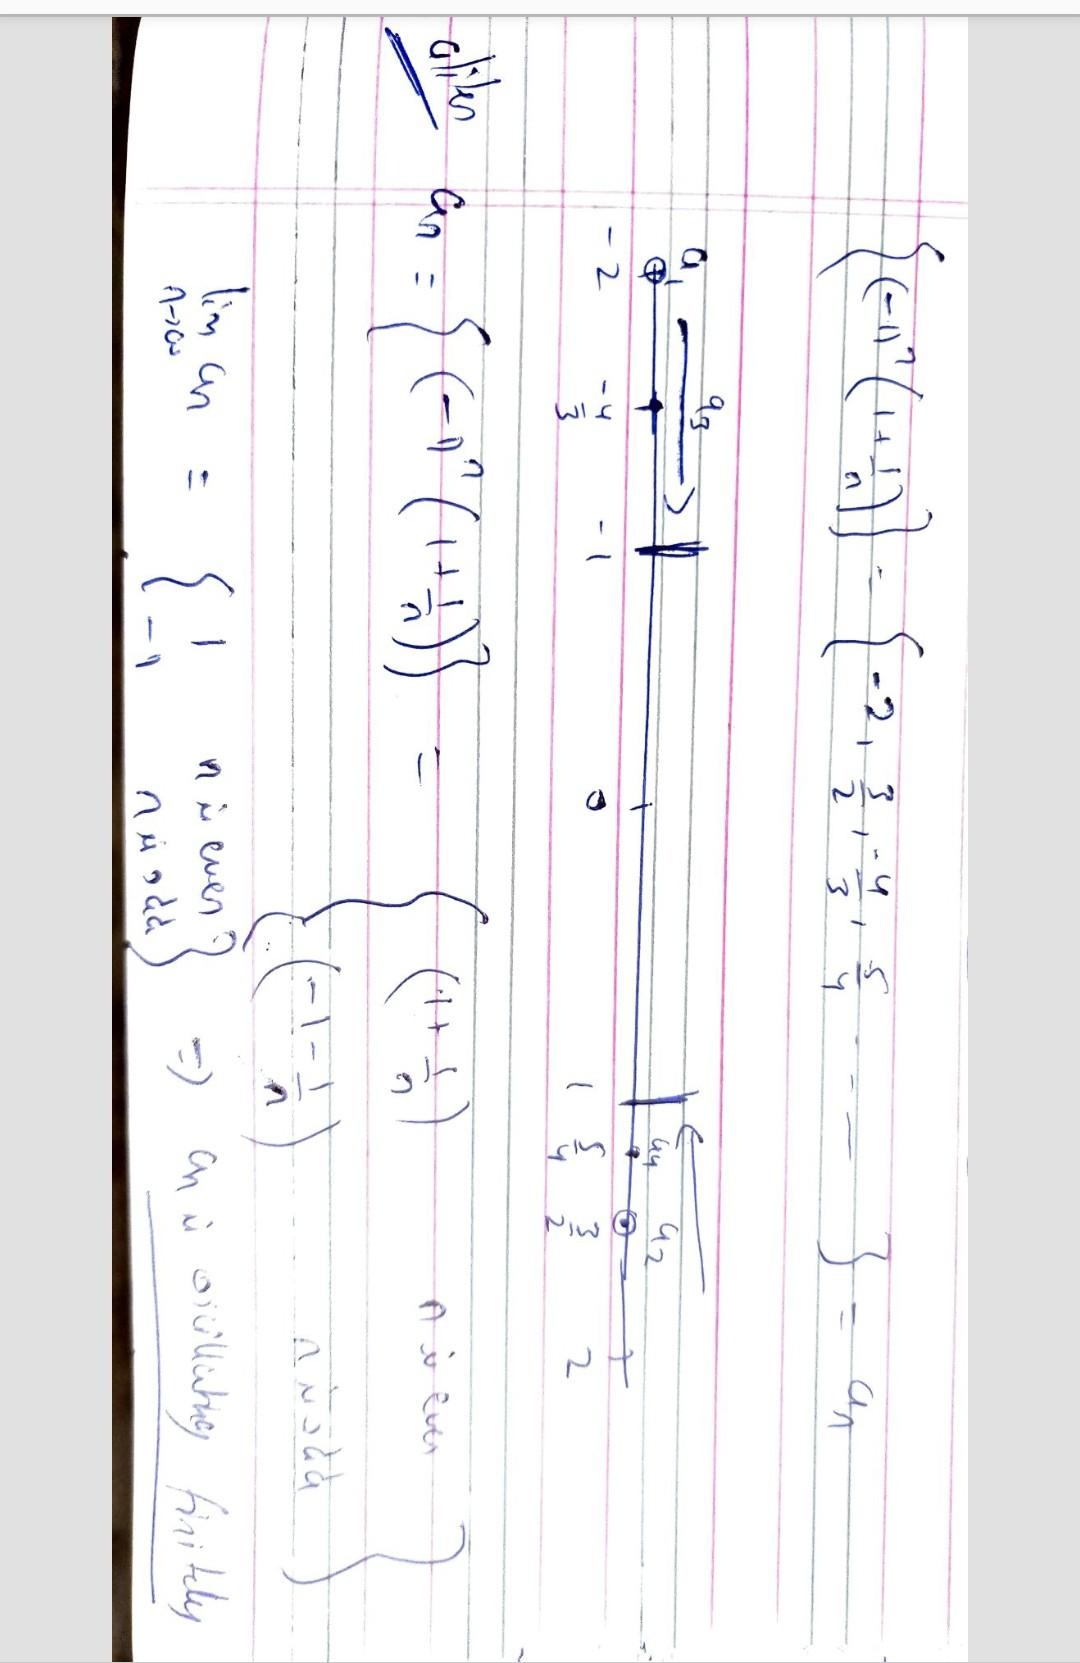 {(-1)ⁿ(1+1/n)} = {-2, 3/2, -4/3, 5/4 - - - } = aₙ
a₁ a₃ a₄ a₂
-2 -4/3 -1 0 1 5/4 3/2 2
aₙ = {(-1)ⁿ(1+1/n)} = { (1+1/n) n is even
(-1-1/n) n is odd }
lim n→∞ aₙ = { 1 n is even
-1 n is odd } ⇒ aₙ is oscillating finitely